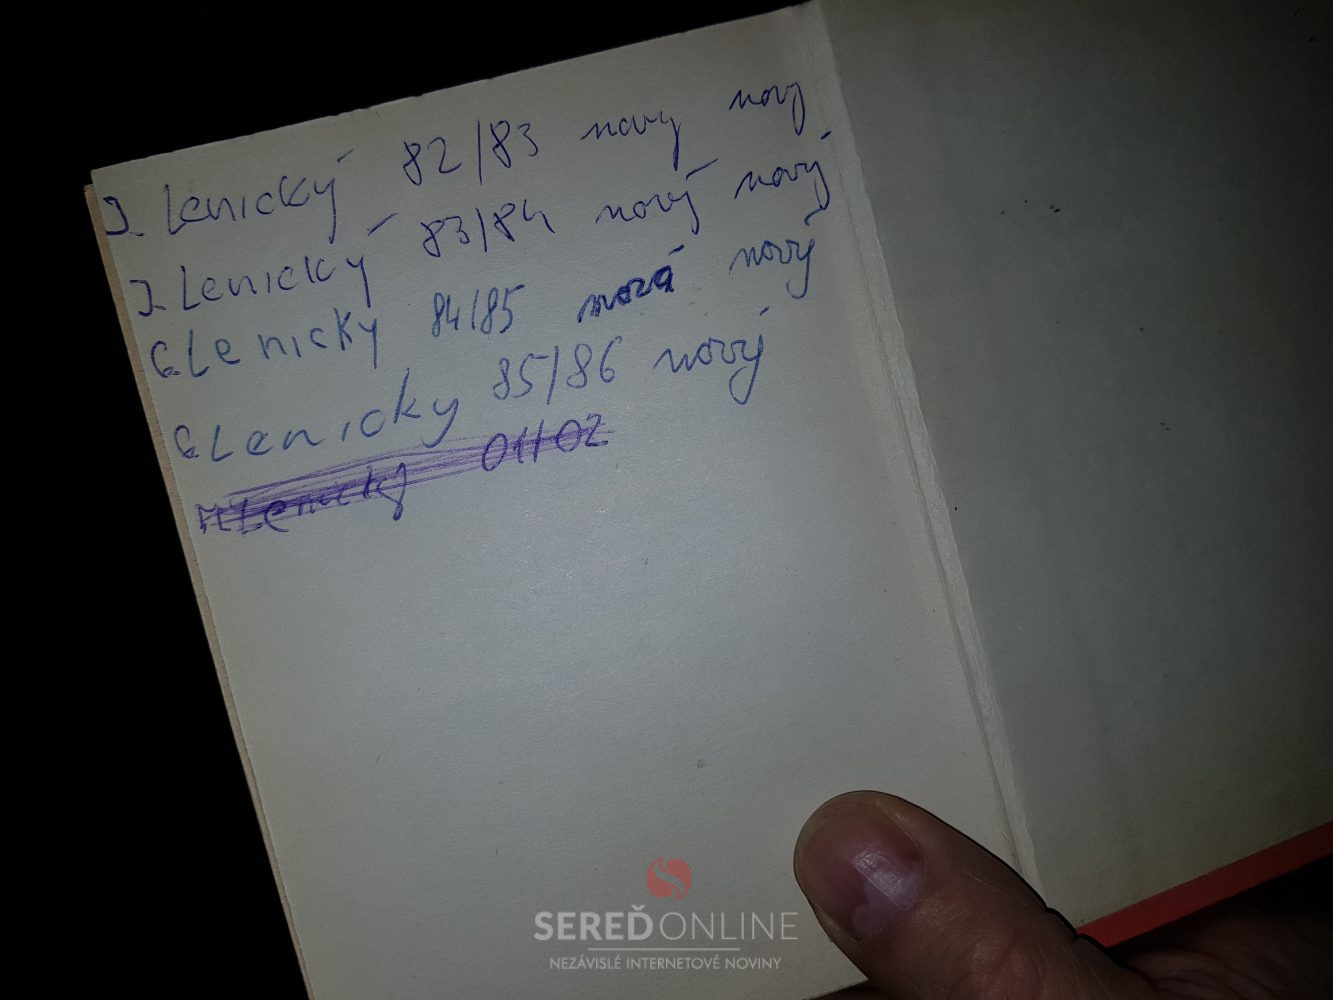 J. Lenický 82/83 novy nový
J. Lenický 83/84 nový nový
G. Lenicky 84/85 nová nový
G. Lenicky 85/86 nový
Lenický 01/02
SEREĎ ONLINE
NEZÁVISLÉ INTERNETOVÉ NOVINY